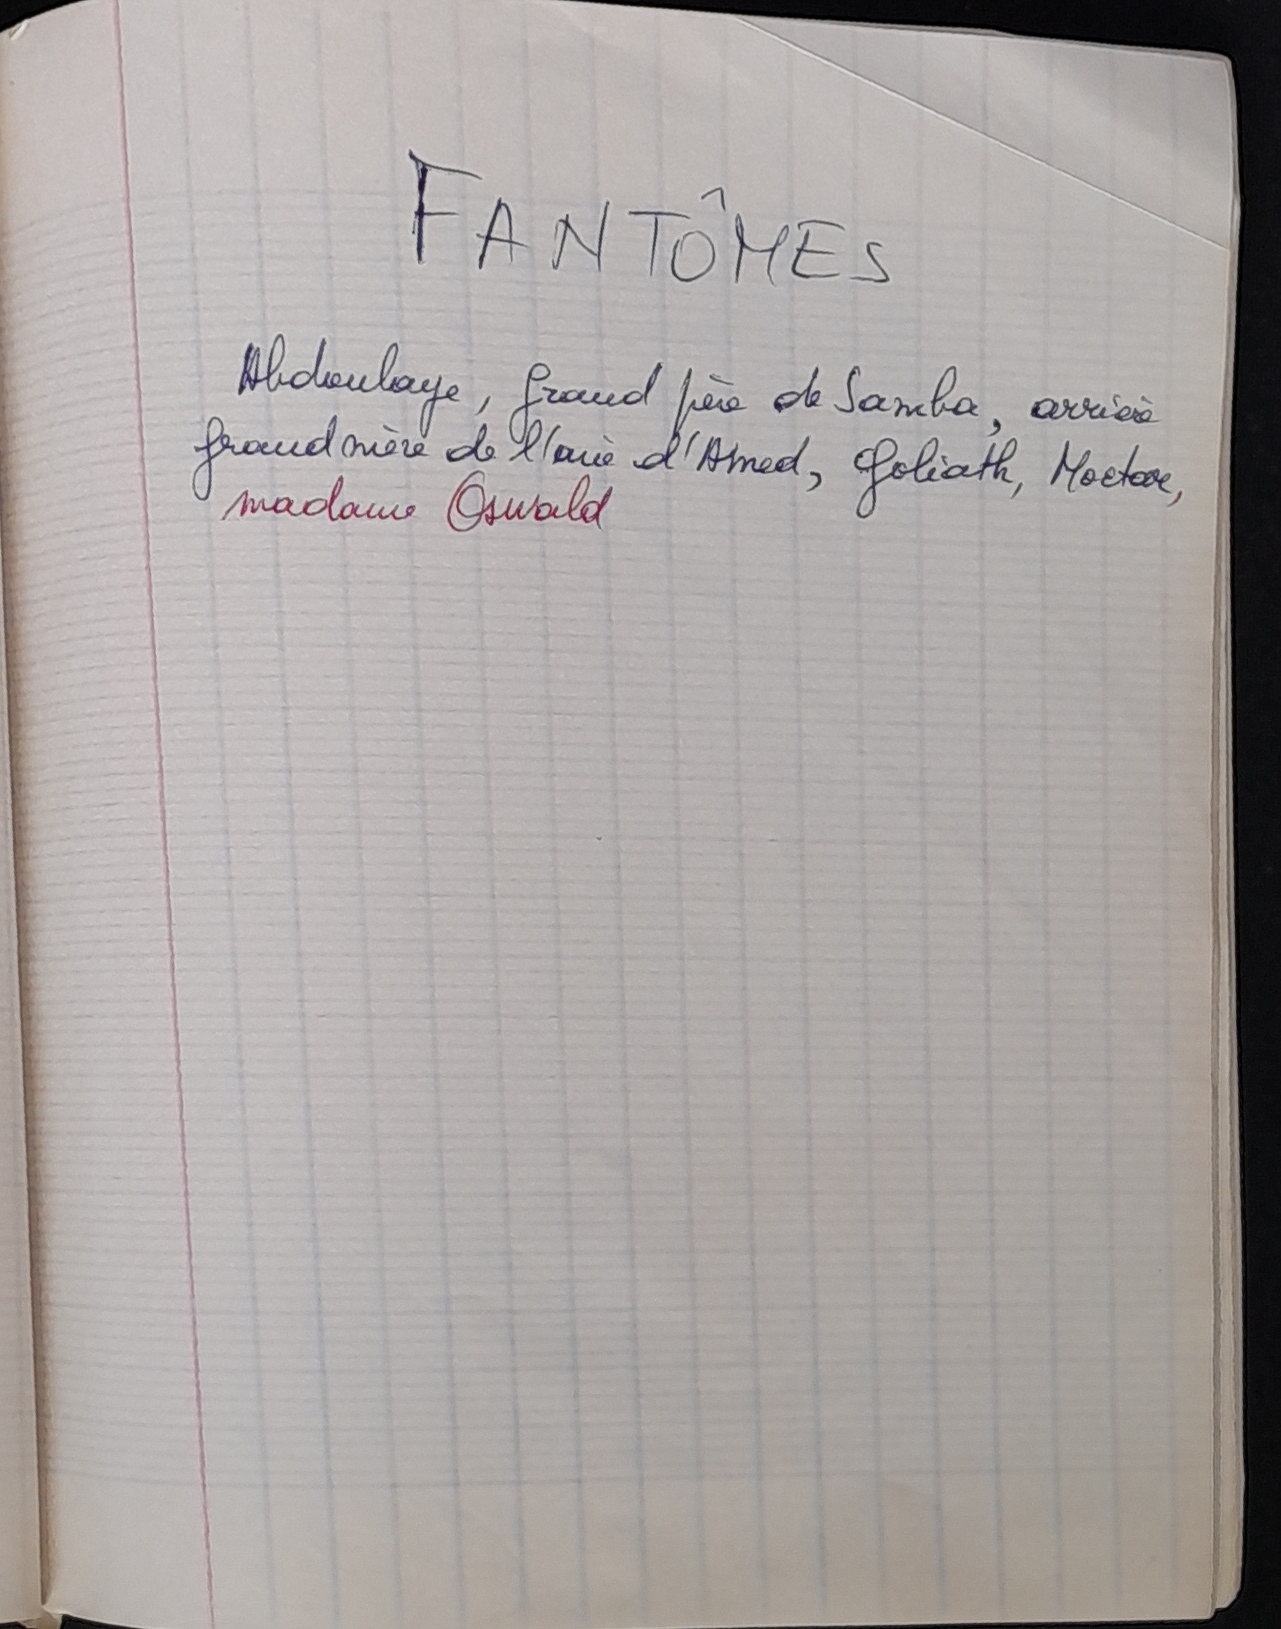 FANTÔMES
Abdoulaye, grand père de Samba, arrière
grand mère de l'amie d'Amed, Goliath, Moctar,
madame Oswald